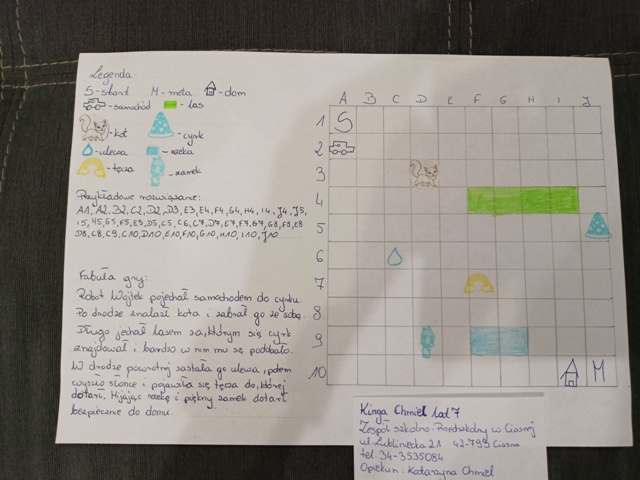 Legenda:
S-start M-meta -dom
-samochód -las
-kot -cyrk
-ulewa -rzeka
-tęcza -zamek
Przykładowe rozwiązanie:
A1, A2, B2, C2, D2, D3, E3, E4, F4, G4, H4, I4, J4, J5,
I5, H5, G5, F5, E5, D5, C5, C6, C7, D7, E7, F7, G7, G8, F8, E8
D8, C8, C9, C10, D10, E10, F10, G10, H10, I10, J10
Fabuła gry:
Robot Wojtek pojechał samochodem do cyrku.
Po drodze znalazł kota i zabrał go ze sobą.
Długo jechał lasem za, którym się cyrk
znajdował i bardzo w nim mu się podobało.
W drodze powrotnej zastała go ulewa, potem
wyszło słońce i pojawiła się tęcza do, której
dotarł. Mijając rzekę i piękny zamek dotarł
bezpiecznie do domu.
A B C D E F G H I J
1 S
2
3
4
5
6
7
8
9
10 M
Kinga Chmiel lat 7
Zespół Szkolno-Przedszkolny w Ciasnej
ul. Lubliniecka 21 42-793 Ciasna
tel. 34-3535084
Opiekun: Katarzyna Chmiel